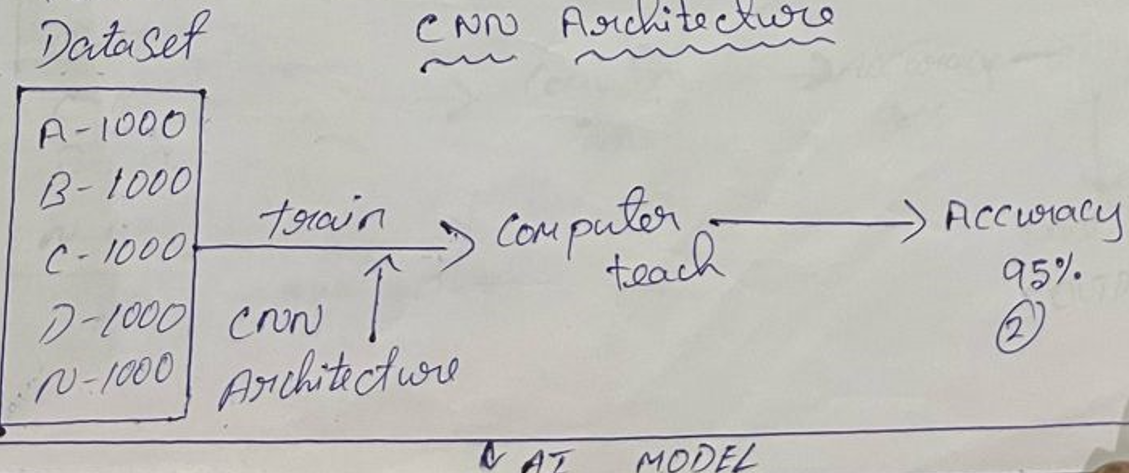 Dataset
CNN Architecture
A-1000
B-1000
C-1000
D-1000
N-1000
train
CNN
Architecture
Computer
teach
Accuracy
95%
2
AI MODEL